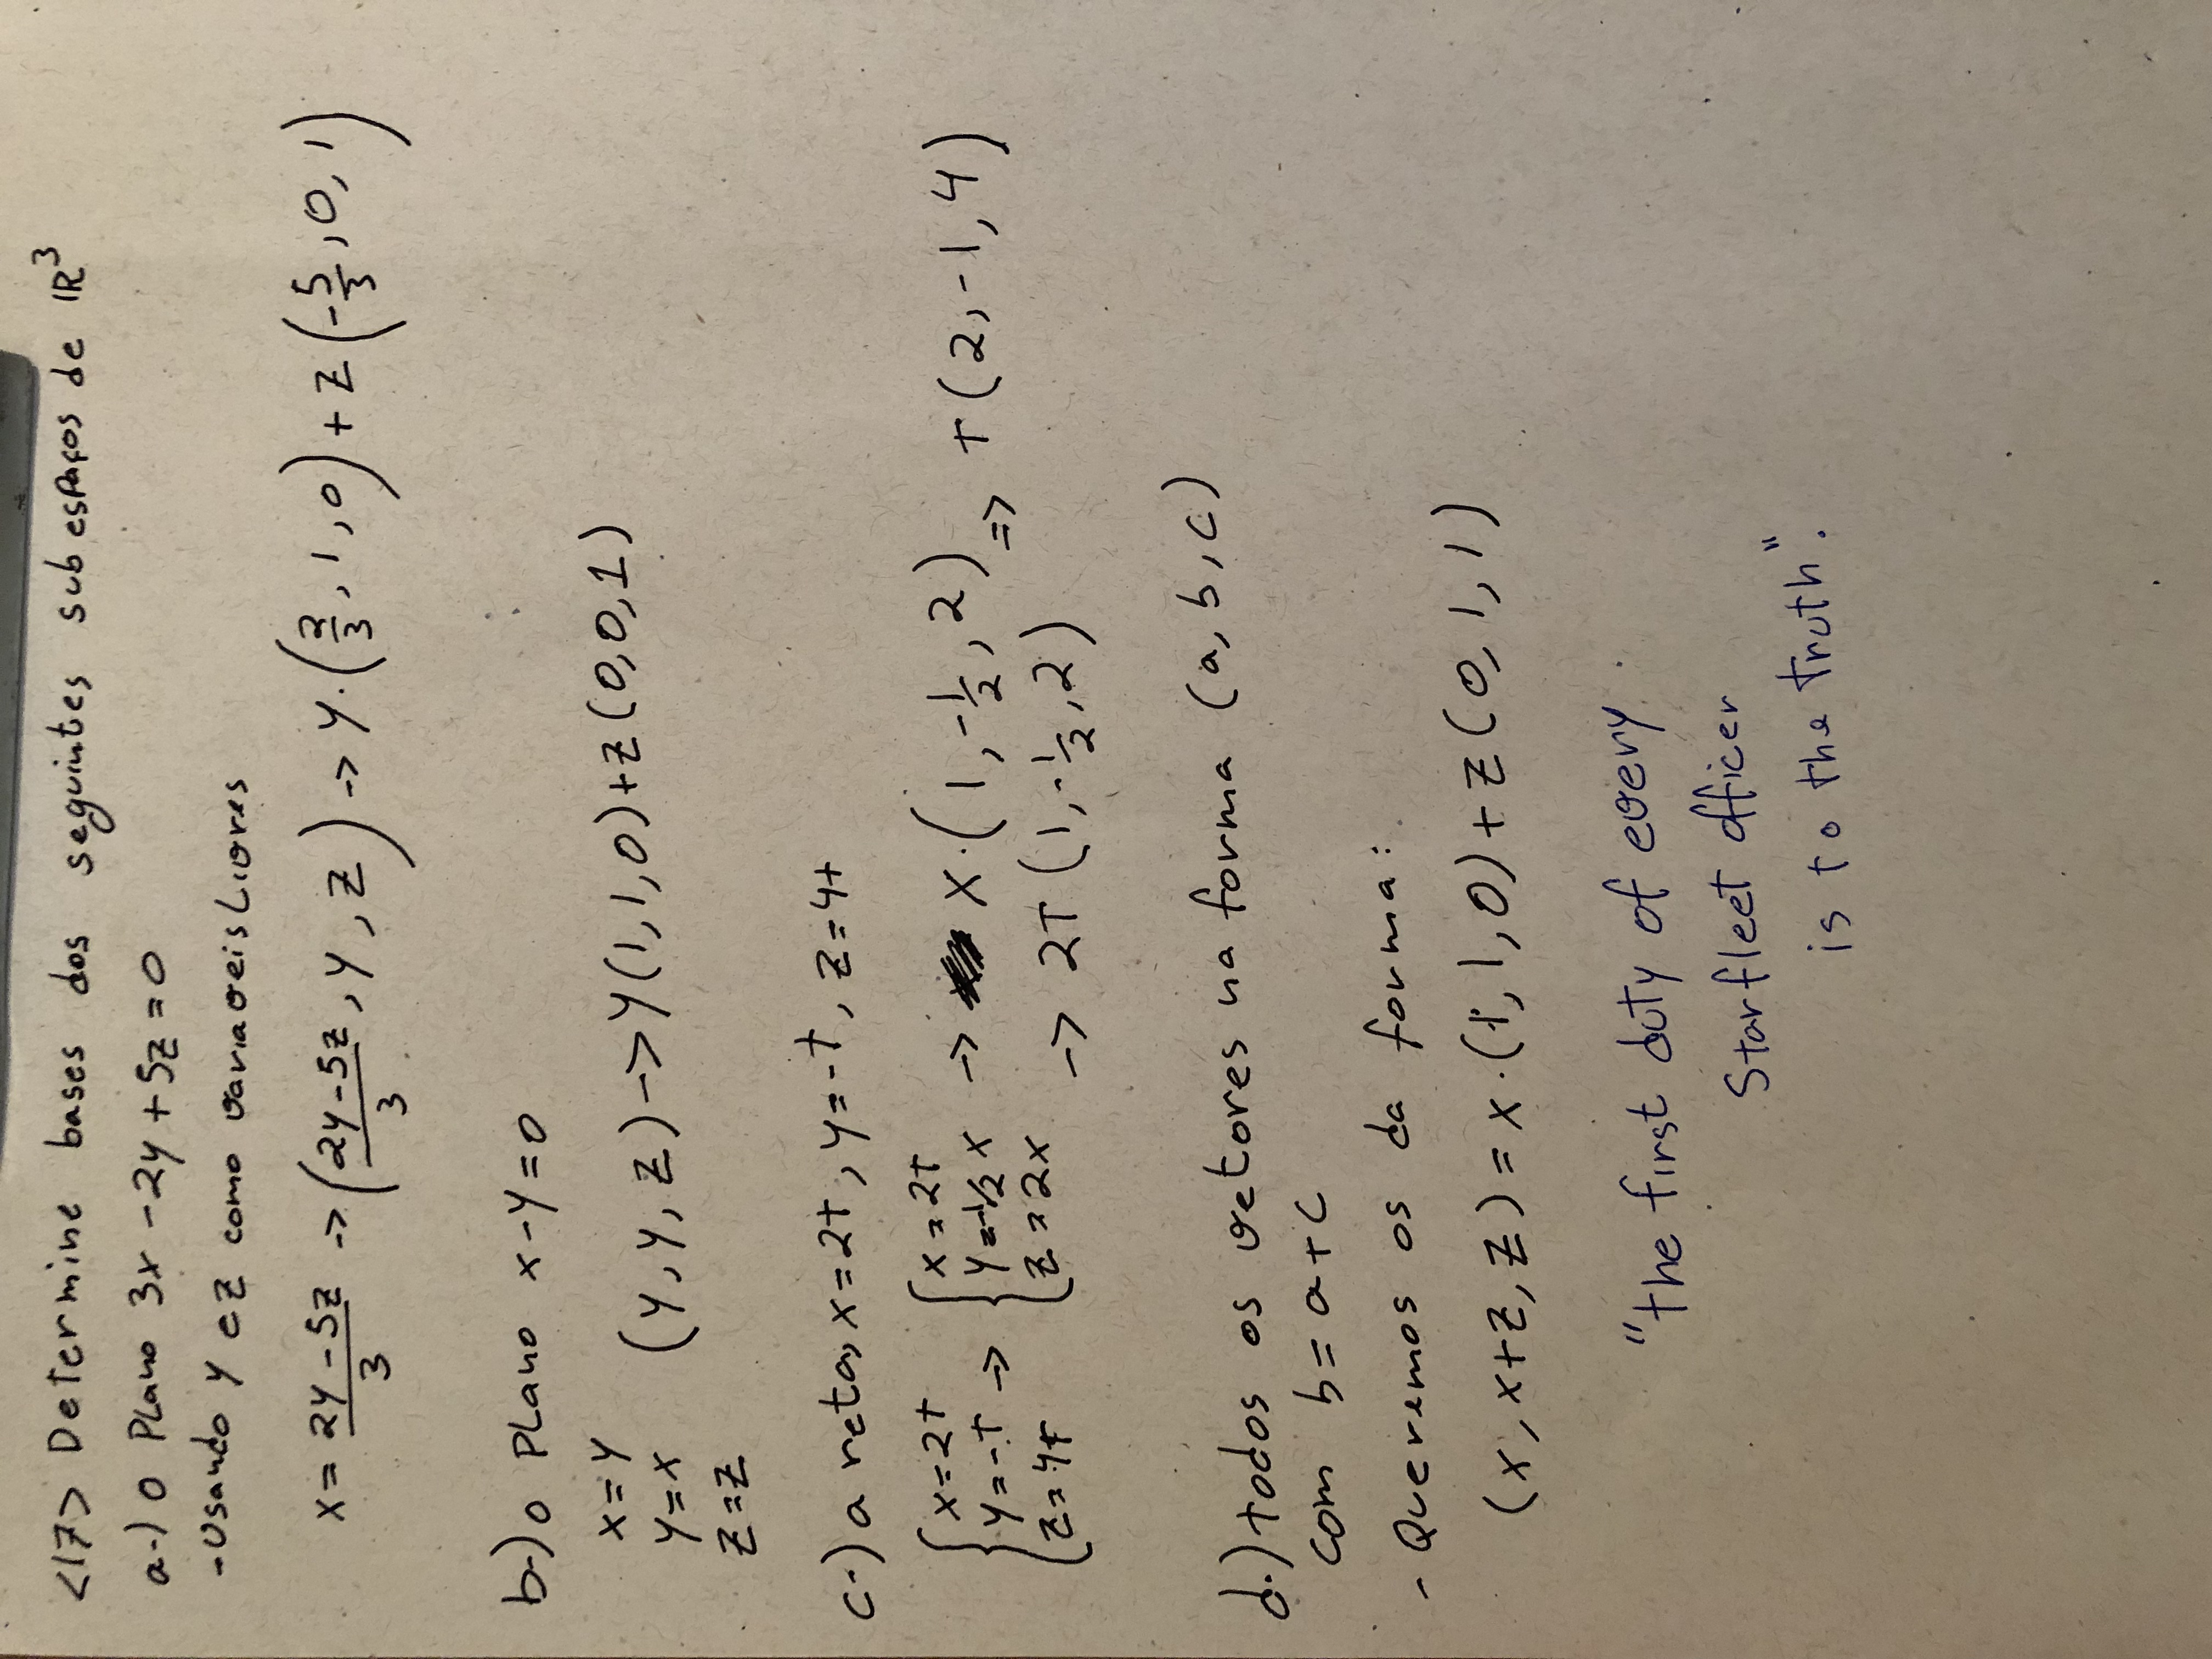 <17> Determine bases dos seguintes subespaços de ℝ³
a-) o Plano 3x - 2y + 5z = 0
- Usando y e z como variaveis Livres
x = (2y - 5z)/3 -> ((2y - 5z)/3, y, z) -> y·(2/3, 1, 0) + z(-5/3, 0, 1)
b-) o Plano x - y = 0
x = y
y = x (y, y, z) -> y(1, 1, 0) + z(0, 0, 1)
z = z
c-) a reta, x = 2t, y = -t, z = 4t
{x = 2t {x = 2t -> x·(1, -1/2, 2) => t(2, -1, 4)
{y = -t -> {y = -1/2 x
{z = 4t {z = 2x -> 2t(1, -1/2, 2)
d.) todos os vetores na forma (a, b, c)
com b = a + c
- Queremos os da forma:
(x, x+z, z) = x·(1, 1, 0) + z(0, 1, 1)
"the first duty of every
Starfleet officer
is to the truth".